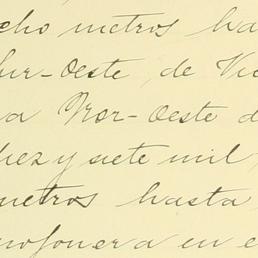 cho metros ha
Sur-Oeste, de Vi
a Nor-Oeste d
diez y siete mil,
metros hasta
en e